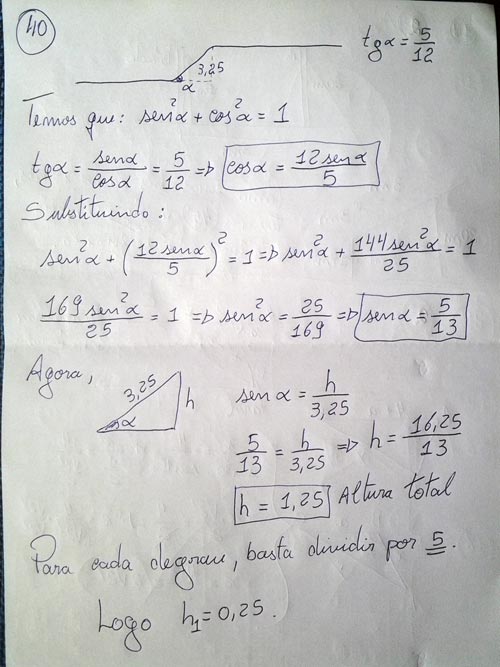 40
3,25
α
tgα = 5/12
Temos que: sen²α + cos²α = 1
tgα = senα/cosα = 5/12 => cosα = 12senα/5
Substituindo:
sen²α + (12senα/5)² = 1 => sen²α + 144sen²α/25 = 1
169sen²α/25 = 1 => sen²α = 25/169 => senα = 5/13
Agora,
3,25
h
α
senα = h/3,25
5/13 = h/3,25 => h = 16,25/13
h = 1,25 Altura total
Para cada degrau, basta dividir por 5.
Logo h₁ = 0,25.